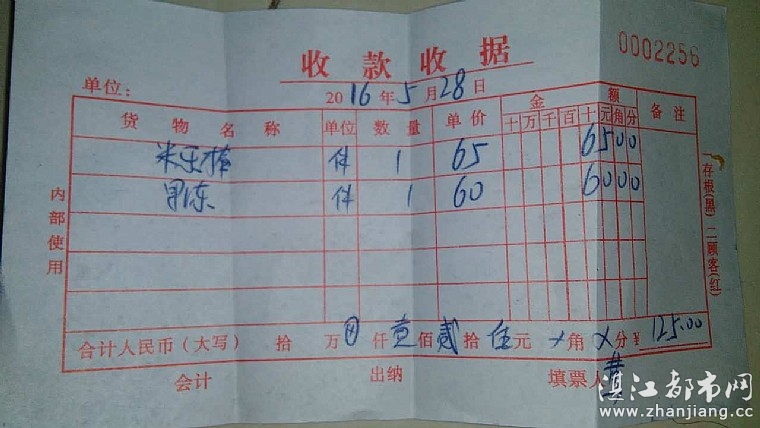 收款收据
0002256
单位:
2016年5月28日
货物名称 单位 数量 单价 金额 备注
十万千百十元角分
米乐棒 件 1 65 6500
果冻 件 1 60 6000
内部使用
一存根(黑)二顾客(红)
合计人民币(大写) 拾 万 仟壹佰贰拾伍元 角 分 ¥125.00
会计 出纳 填票人 黄
湛江都市网
www.zhanjiang.cc